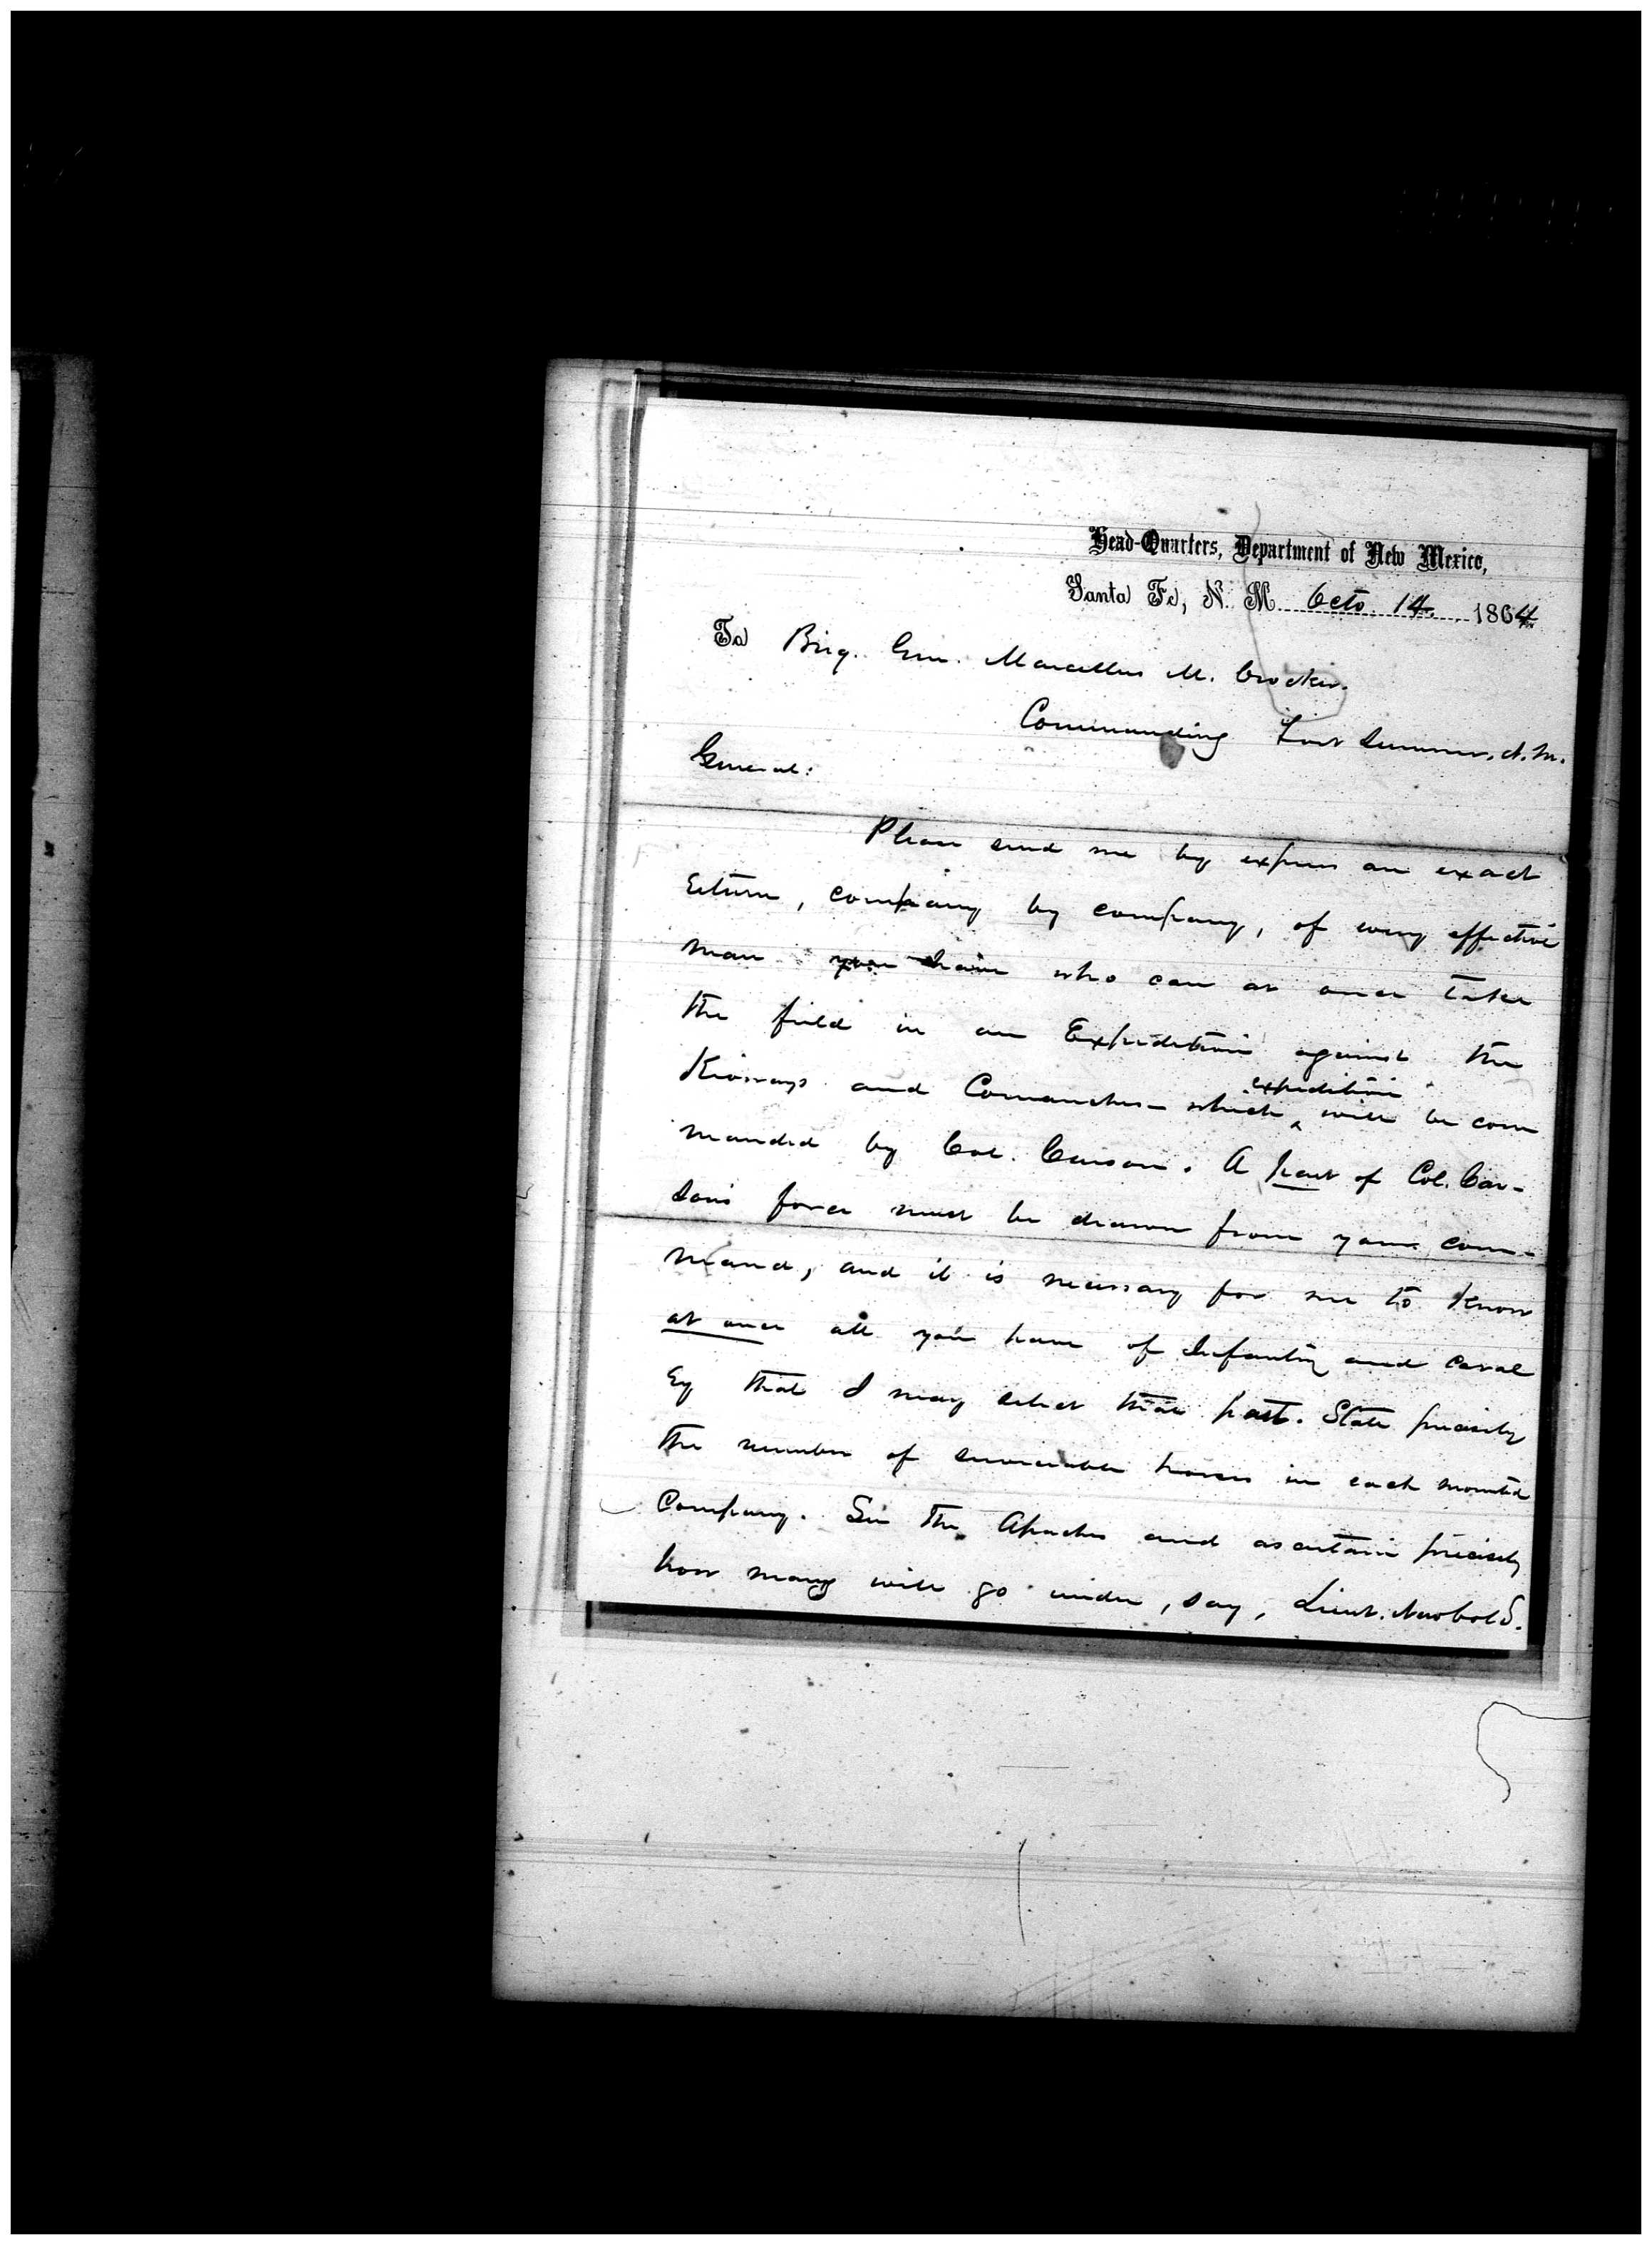 Head-Quarters, Department of New Mexico,
Santa Fe, N. M. Octo. 14. 1864
To Brig. Gen. Marcellus M. Crocker.
Commanding Fort Sumner, N. M.
General:
Please send me by express an exact
return, company by company, of every effective
man you have who can at once take
the field in an Expedition against the
Kioways and Comanches – which expedition will be com
manded by Col. Carson. A part of Col. Car-
son's force must be drawn from your com-
mand, and it is necessary for me to know
at once all you have of Infantry and Caval
ry that I may select that part. State precisely
the number of serviceable horses in each mounted
Company. See the Apaches and ascertain precisely
how many will go under, say, Lieut. Newbold.